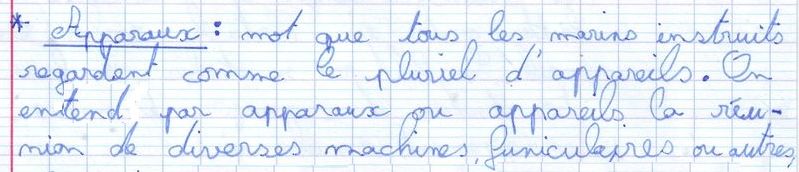 * Apparaux : mot que tous les marins instruits
regardent comme le pluriel d'appareils. On
entend par apparaux ou appareils la réu-
nion de diverses machines, funiculaires ou autres,